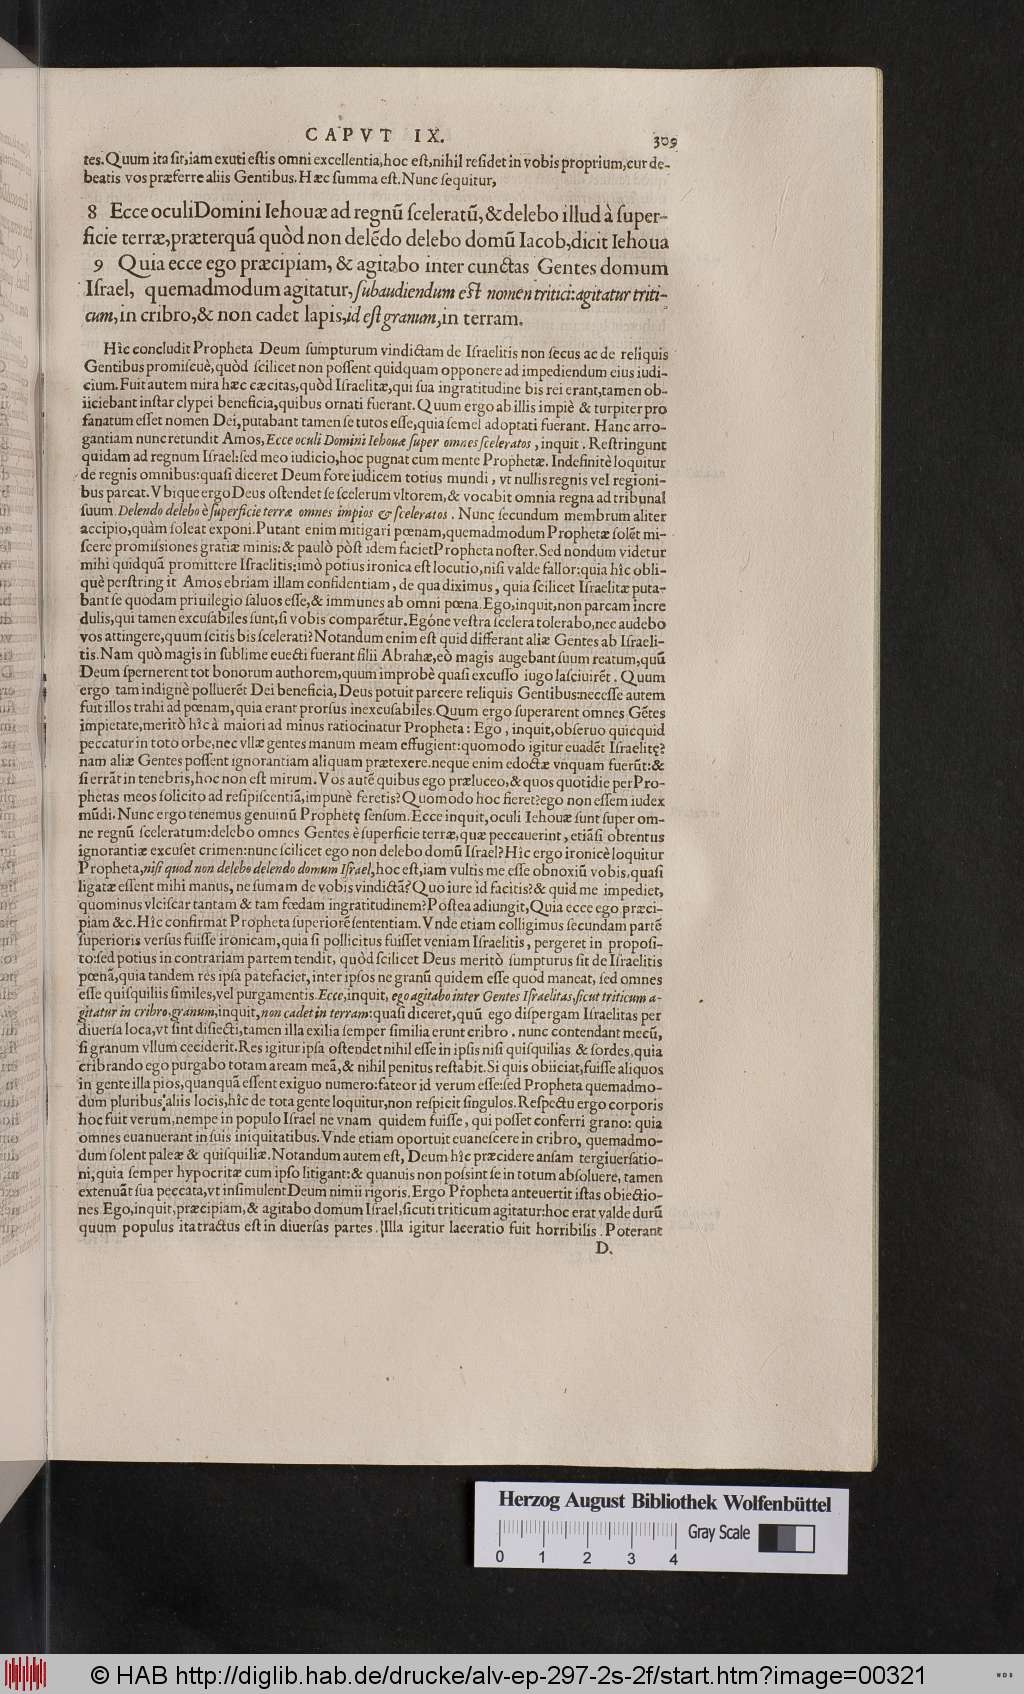 CAPVT IX. 309
tes. Quum ita sit, iam exuti estis omni excellentia, hoc est, nihil residet in vobis proprium, cur de-
beatis vos præferre aliis Gentibus. Hæc summa est. Nunc sequitur,
8 Ecce oculi Domini Iehouæ ad regnũ sceleratũ, & delebo illud à super-
ficie terræ, præterquã quòd non delẽdo delebo domũ Iacob, dicit Iehoua
9 Quia ecce ego præcipiam, & agitabo inter cunctas Gentes domum
Israel, quemadmodum agitatur, subaudiendum est nomen tritici: agitatur triti-
cum, in cribro, & non cadet lapis, id est granum, in terram.
Hîc concludit Propheta Deum sumpturum vindictam de Israelitis non secus ac de reliquis
Gentibus promiscuè, quòd scilicet non possent quidquam opponere ad impediendum eius iudi-
cium. Fuit autem mira hæc cæcitas, quòd Israelitæ, qui sua ingratitudine bis rei erant, tamen ob-
iiciebant instar clypei beneficia, quibus ornati fuerant. Quum ergo ab illis impiè & turpiter pro
fanatum esset nomen Dei, putabant tamen se tutos esse, quia semel adoptati fuerant. Hanc arro-
gantiam nunc retundit Amos, Ecce oculi Domini Iehouæ super omnes sceleratos, inquit. Restringunt
quidam ad regnum Israel: sed meo iudicio, hoc pugnat cum mente Prophetæ. Indefinitè loquitur
de regnis omnibus: quasi diceret Deum fore iudicem totius mundi, vt nullis regnis vel regioni-
bus parcat. Vbique ergo Deus ostendet se scelerum vltorem, & vocabit omnia regna ad tribunal
suum. Delendo delebo è superficie terræ omnes impios & sceleratos. Nunc secundum membrum aliter
accipio, quàm soleat exponi. Putant enim mitigari pœnam, quemadmodum Prophetæ solẽt mi-
scere promissiones gratiæ minis: & paulò pòst idem faciet Propheta noster. Sed nondum videtur
mihi quidquã promittere Israelitis: imò potius ironica est locutio, nisi valde fallor: quia hîc obli-
què perstringit Amos ebriam illam confidentiam, de qua diximus, quia scilicet Israelitæ puta-
bant se quodam priuilegio saluos esse, & immunes ab omni pœna. Ego, inquit, non parcam incre
dulis, qui tamen excusabiles sunt, si vobis comparẽtur. Egóne vestra scelera tolerabo, nec audebo
vos attingere, quum scitis bis scelerati? Notandum enim est quid differant aliæ Gentes ab Israeli-
tis. Nam quò magis in sublime euecti fuerant filii Abrahæ, eò magis augebant suum reatum, quũ
Deum spernerent tot bonorum authorem, quum improbè quasi excusso iugo lasciuirẽt. Quum
ergo tam indignè polluerẽt Dei beneficia, Deus potuit parcere reliquis Gentibus: necesse autem
fuit illos trahi ad pœnam, quia erant prorsus inexcusabiles. Quum ergo superarent omnes Gẽtes
impietate, meritò hîc à maiori ad minus ratiocinatur Propheta: Ego, inquit, obseruo quicquid
peccatur in toto orbe, nec vllæ gentes manum meam effugient: quomodo igitur euadẽt Israelitę?
nam aliæ Gentes possent ignorantiam aliquam prætexere. neque enim edoctæ vnquam fuerũt: &
si errãt in tenebris, hoc non est mirum. Vos autẽ quibus ego præluceo, & quos quotidie per Pro-
phetas meos solicito ad resipiscentiã, impunè feretis? Quomodo hoc fieret? ego non essem iudex
mũdi. Nunc ergo tenemus genuinũ Prophetę sensum. Ecce inquit, oculi Iehouæ sunt super om-
ne regnũ sceleratum: delebo omnes Gentes è superficie terræ, quæ peccauerint, etiãsi obtentus
ignorantiæ excuset crimen: nunc scilicet ego non delebo domũ Israel? Hîc ergo ironicè loquitur
Propheta, nisi quod non delebo delendo domum Israel, hoc est, iam vultis me esse obnoxiũ vobis, quasi
ligatæ essent mihi manus, ne sumam de vobis vindictã? Quo iure id facitis? & quid me impediet,
quominus vlciscar tantam & tam fœdam ingratitudinem? Postea adiungit, Quia ecce ego præci-
piam &c. Hîc confirmat Propheta superiorẽ sententiam. Vnde etiam colligimus secundam partẽ
superioris versus fuisse ironicam, quia si pollicitus fuisset veniam Israelitis, pergeret in proposi-
to: sed potius in contrariam partem tendit, quòd scilicet Deus meritò sumpturus sit de Israelitis
pœnã, quia tandem res ipsa patefaciet, inter ipsos ne granũ quidem esse quod maneat, sed omnes
esse quisquiliis similes, vel purgamentis. Ecce, inquit, ego agitabo inter Gentes Israelitas, sicut triticum a-
gitatur in cribro, granum, inquit, non cadet in terram: quasi diceret, quũ ego dispergam Israelitas per
diuersa loca, vt sint disiecti, tamen illa exilia semper similia erunt cribro. nunc contendant mecũ,
si granum vllum ceciderit. Res igitur ipsa ostendet nihil esse in ipsis nisi quisquilias & sordes, quia
cribrando ego purgabo totam aream meã, & nihil penitus restabit. Si quis obiiciat, fuisse aliquos
in gente illa pios, quanquã essent exiguo numero: fateor id verum esse: sed Propheta quemadmo-
dum pluribus aliis locis, hîc de tota gente loquitur, non respicit singulos. Respectu ergo corporis
hoc fuit verum, nempe in populo Israel ne vnam quidem fuisse, qui posset conferri grano: quia
omnes euanuerant in suis iniquitatibus. Vnde etiam oportuit euanescere in cribro, quemadmo-
dum solent paleæ & quisquiliæ. Notandum autem est, Deum hîc præcidere ansam tergiuersatio-
ni, quia semper hypocritæ cum ipso litigant: & quanuis non possint se in totum absoluere, tamen
extenuãt sua peccata, vt insimulent Deum nimii rigoris. Ergo Propheta anteuertit istas obiectio-
nes Ego, inquit, præcipiam, & agitabo domum Israel, sicuti triticum agitatur: hoc erat valde durũ
quum populus ita tractus est in diuersas partes. Illa igitur laceratio fuit horribilis. Poterant
D.
Herzog August Bibliothek Wolfenbüttel
Gray Scale
0 1 2 3 4
© HAB http://diglib.hab.de/drucke/alv-ep-297-2s-2f/start.htm?image=00321